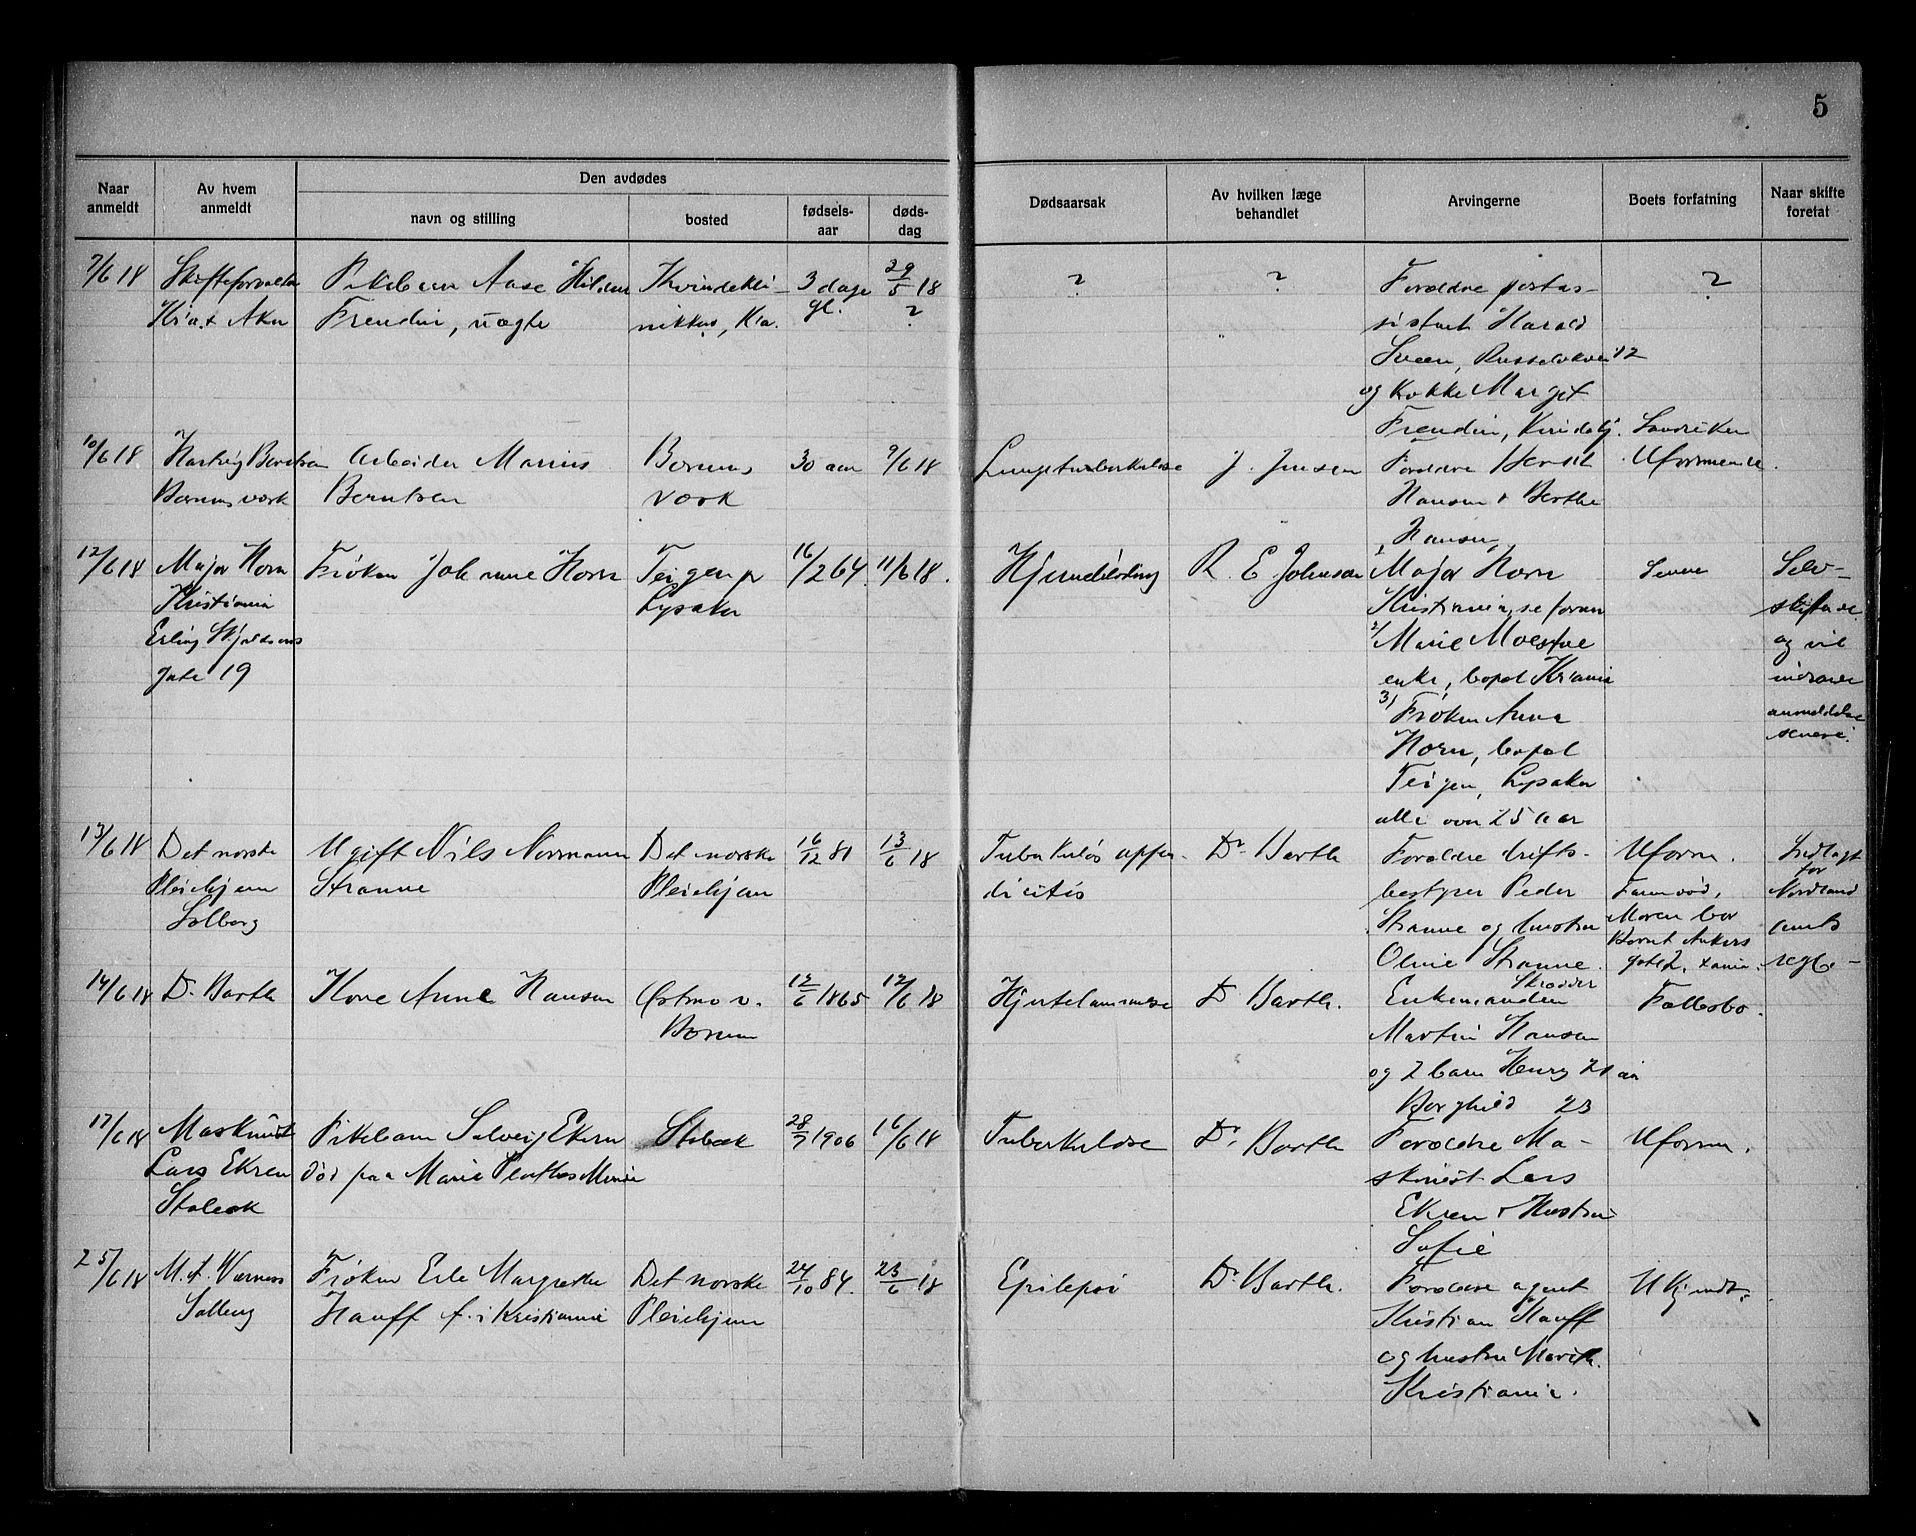 5
Naar anmeldt
Av hvem anmeldt
Den avdødes
navn og stilling
bosted
fødsels-aar
døds-dag
Dødsaarsak
Av hvilken læge behandlet
Arvingerne
Boets forfatning
Naar skifte foretat
7/6 18
Skifteforvalter
Kr.a. Aker
Pikebarn Aase Hildur
Frendin, uægte
Kvindekli-
nikken, Kra.
3 dage
gl.
29/5 18
?
?
?
Forældre postas-
sistent Harald
Sveen, 12
og Kokke Margit
Frendin,
?
10/6 18
Hartvig Berntsen
Bærums værk
Arbeider Marius
Berntsen
Bærums
værk
30 aar
9/6 18
Lungetuberkulose
J. Jensen
Forældre Bernt
Hansen & Berthe
Hansen,
Sandviken
Uformuende.
12/6 18
Major Horn
Kristiania
Erling Skjalgsøns
gate 19
Frøken Johanne Horn
Teigen pr
Lysaker
16/2 64.
11/6 18.
R. E. Johnson
1/ Major Horn
Kristiania, se foran
2/ Marie Moestue
enke, bopæl Kr.ania
3/ Frøken Anna
Horn, bopæl
Teigen, Lysaker
alle over 25 aar
Selv-
skiftende
og vil
indsende
anmeldelse
senere.
13/6 18
Det norske
Pleiehjem
Solberg
Ugift Nils Normann
Stranne
Det norske
Pleiehjem
16/12 81
13/6 18
Tuberkuløs appen-
dicitis
Dr Barth
Forældre drifts-
bestyrer Peder
Stranne og hustru
Oline Stranne.
Uform.
Faren død,
Moren bor
Bernt Ankers
gate 2, Xania.
Indlagt
for
Nordland
amts
regn-
14/6 18
Dr Barth
Kone Anne Hansen
Østmo v.
Bærum
12/6 1865
12/6 18
Hjertelammelse
Dr Barth.
Enkemanden Skrædder
Martin Hansen
og 2 barn Henry 21 aar
Borghild 23
Fællesbo.
17/6 18
Maskinist
Lars Ekren
Stabæk
Pikebarn Solveig Ekren
død paa Marie Plathes Minde
Stabæk
28/7 1906
16/6 18
Tuberkulose
Dr. Barth
Forældre Ma-
skinist Lars
Ekren & Hustru
Sofie
Uform.
25/6 18
M. A. Værness
Solberg
Frøken Erle Margrethe
Hauff f. i Kristiania
Det norske
Pleiehjem
24/10 84.
23/6 18
Epilepsi
Dr. Barth.
Forældre agent
Kristian Hauff
og hustru Marith.
Kristiania.
Ukjendt.